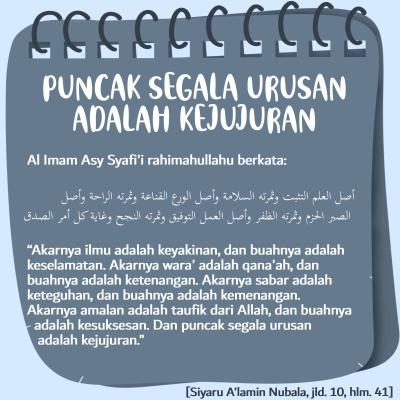 PUNCAK SEGALA URUSAN
ADALAH KEJUJURAN
Al Imam Asy Syafi'i rahimahullahu berkata:
أصل العلم التثبت وثمرته السلامة وأصل الورع القناعة وثمرته الراحة وأصل
الصبر الحزم وثمرته الظفر وأصل العمل التوفيق وثمرته النجح وغاية كل أمر الصدق
“Akarnya ilmu adalah keyakinan, dan buahnya adalah
keselamatan. Akarnya wara' adalah qana'ah, dan
buahnya adalah ketenangan. Akarnya sabar adalah
keteguhan, dan buahnya adalah kemenangan.
Akarnya amalan adalah taufik dari Allah, dan buahnya
adalah kesuksesan. Dan puncak segala urusan
adalah kejujuran.”
[Siyaru A'lamin Nubala, jld. 10, hlm. 41]